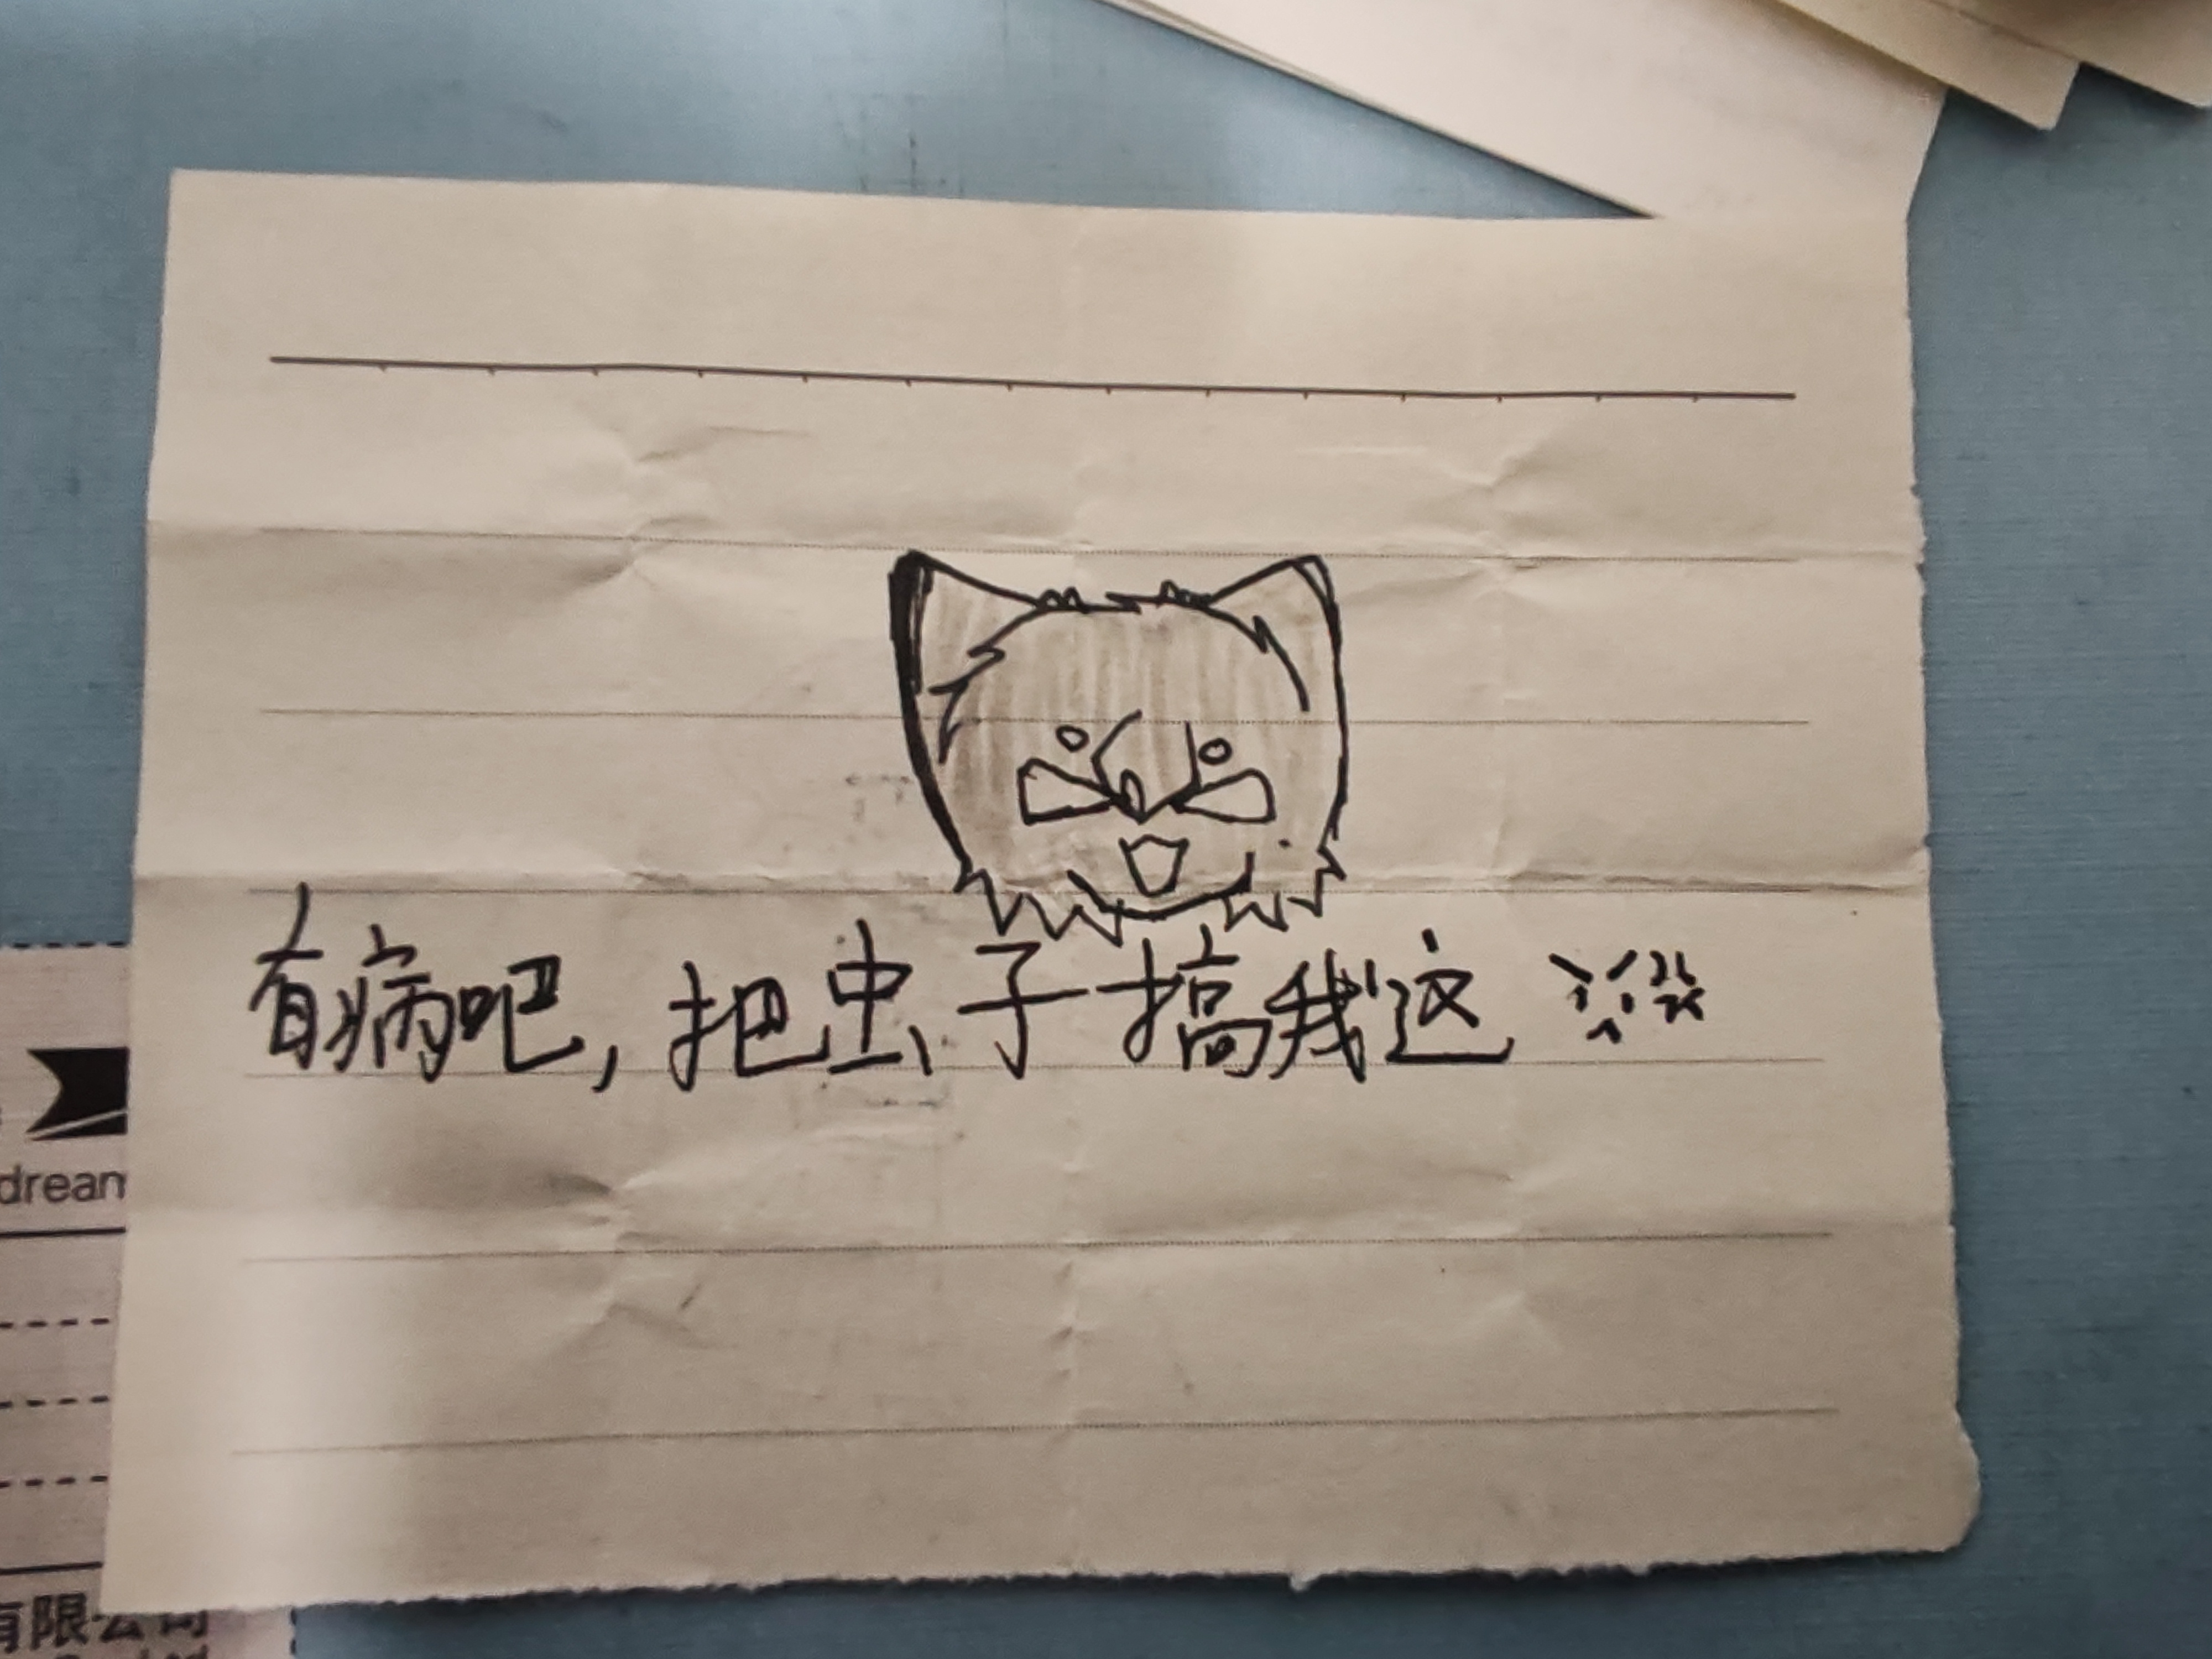 有病吧，把虫子搞我这
drean
有限公司